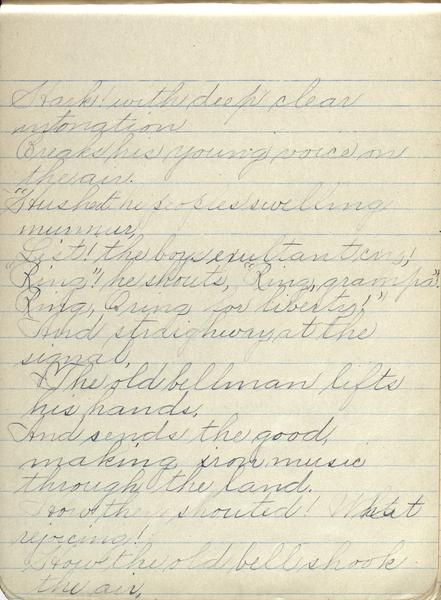 Hark! with deep clear
intonation
Breaks his young voice on
the air.
"Hushed the peoples swelling
murmur,
List! the boys exultant cry!
"Ring"! he shouts, "Ring, grampa!
Ring, O ring for liberty!"
And straighway at the
signal,
The old bellman lifts
his hands,
And sends the good,
making iron music
through the land.
How they shouted! What
rejoicing!
How the old bell shook
the air,